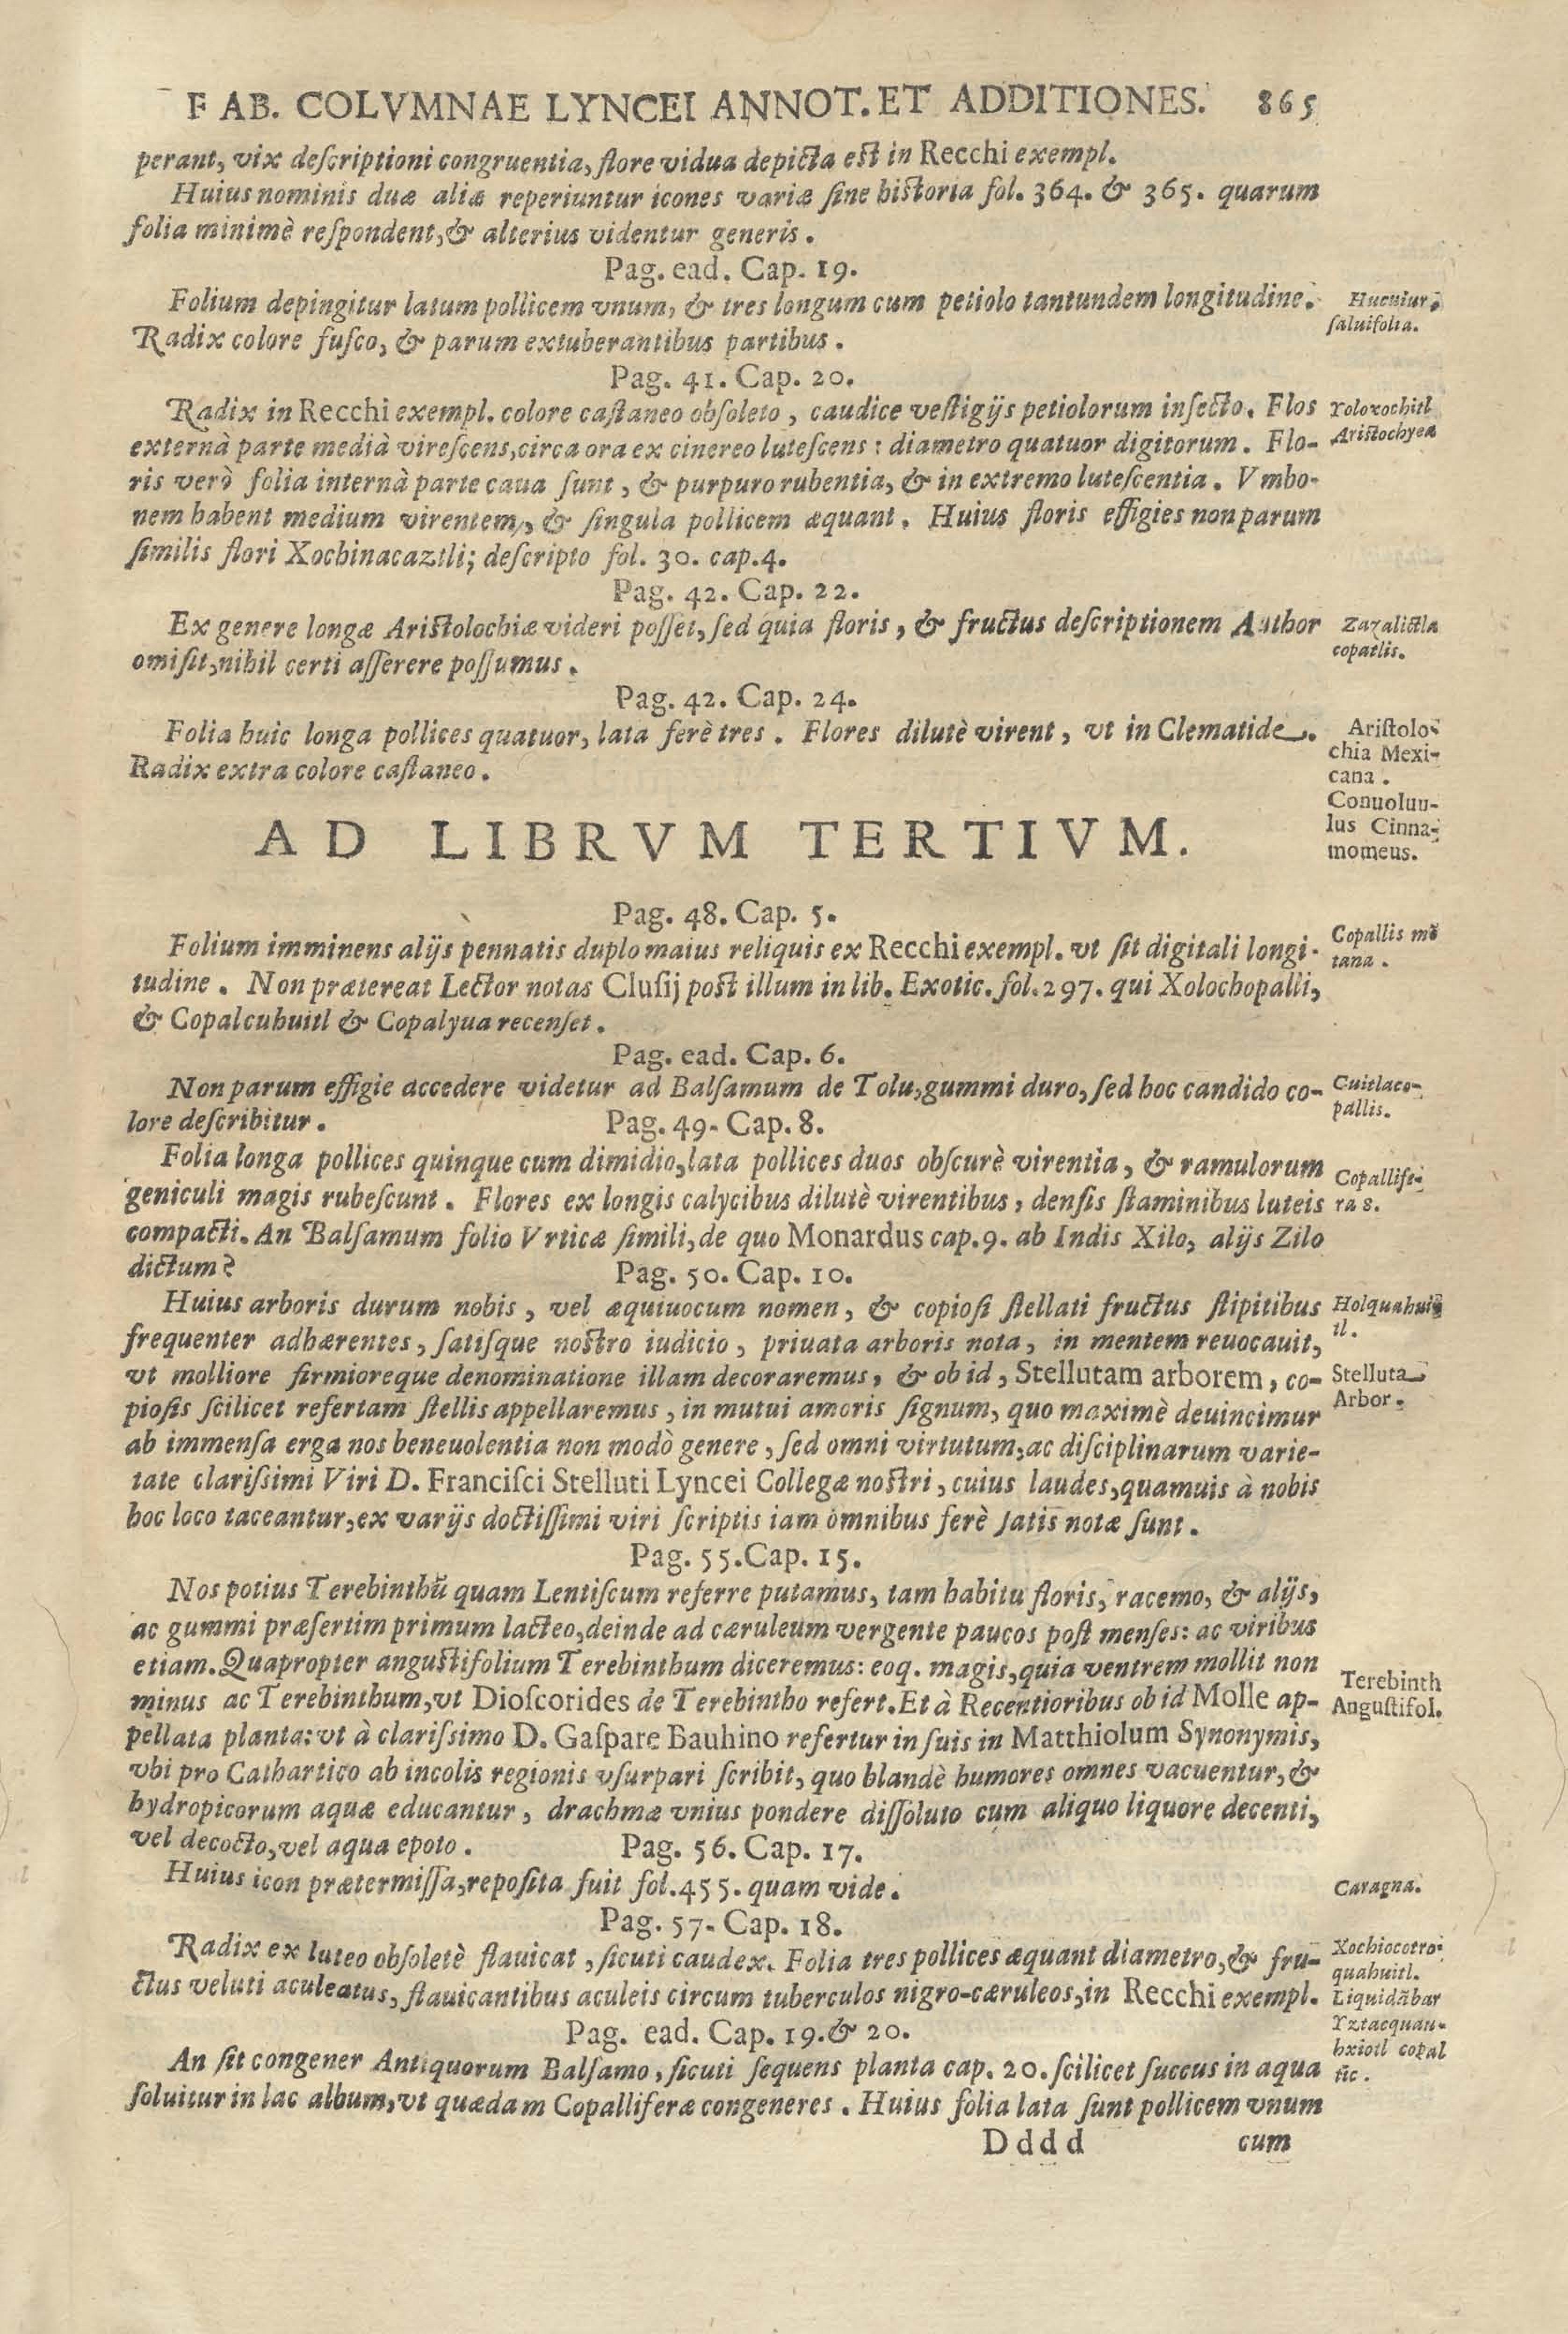 F AB. COLVMNAE LYNCEI ANNOT. ET ADDITIONES. 865
perant, vix deſcriptioni congruentia, flore vidua depicta est in Recchi exempl.
Huius nominis duæ aliæ reperiuntur icones variæ ſine historia fol. 364. & 365. quarum
folia minimè reſpondent, & alterius videntur generis.
Pag. ead. Cap. 19.
Folium depingitur latum pollicem vnum, & tres longum cum petiolo tantundem longitudine.
ſaluifolia.
Radix colore fuſco, & parum extuberantibus partibus.
Pag. 41. Cap. 20.
Radix in Recchi exempl. colore caſtaneo obſoleto, caudice veſtigijs petiolorum inſecto. Flos
Yoloxochitl
externà parte medià vireſcens, circa ora ex cinereo luteſcens: diametro quatuor digitorum. Flo-
Aristochyea
ris verò folia internà parte caua ſunt, & purpuro rubentia, & in extremo luteſcentia. Vmbo-
nem habent medium virentem, & ſingula pollicem æquant. Huius floris effigies non parum
ſimilis flori Xochinacaztli; deſcripto fol. 30. cap.4.
Pag. 42. Cap. 22.
Ex genere longæ Aristolochiæ videri poſſet, ſed quia floris, & fructus deſcriptionem Author
Zazalictla
copatlis.
omiſit, nihil certi aſſerere poſſumus.
Pag. 42. Cap. 24.
Folia huic longa pollices quatuor, lata ferè tres. Flores dilutè virent, vt in Clematide.
Radix extra colore caſtaneo.
Ariſtolo-
chia Mexi-
cana.
Conuoluu-
lus Cinna-
momeus.
AD LIBRVM TERTIVM.
Pag. 48. Cap. 5.
Folium imminens alijs pennatis duplo maius reliquis ex Recchi exempl. vt ſit digitali longi-
Copallis mō
tana.
tudine. Non prætereat Lector notas Cluſij post illum in lib. Exotic. fol.297. qui Xolochopalli,
& Copalcuhuitl & Copalyua recenſet.
Pag. ead. Cap. 6.
Non parum effigie accedere videtur ad Balſamum de Tolu, gummi duro, ſed hoc candido co-
Cuitlaco-
pallis.
lore deſcribitur. Pag. 49. Cap. 8.
Folia longa pollices quinque cum dimidio, lata pollices duos obſcurè virentia, & ramulorum
Copallife-
ra 8.
geniculi magis rubeſcunt. Flores ex longis calycibus dilutè virentibus, denſis ſtaminibus luteis
compacti. An Balſamum folio Vrticæ ſimili, de quo Monardus cap.9. ab Indis Xilo, alijs Zilo
dictum? Pag. 50. Cap. 10.
Huius arboris durum nobis, vel æquiuocum nomen, & copioſi ſtellati fructus ſtipitibus
Holquahui-
tl.
frequenter adhærentes, ſatiſque nostro iudicio, priuata arboris nota, in mentem reuocauit,
vt molliore firmioreque denominatione illam decoraremus, & ob id, Stellutam arborem, co-
Stelluta
Arbor.
pioſis ſcilicet refertam ſtellis appellaremus, in mutui amoris ſignum, quo maximè deuincimur
ab immenſa erga nos beneuolentia non modò genere, ſed omni virtutum, ac diſciplinarum varie-
tate clariſsimi Viri D. Franciſci Stelluti Lyncei Collegæ nostri, cuius laudes, quamuis à nobis
hoc loco taceantur, ex varijs doctiſſimi viri ſcriptis iam omnibus ferè ſatis notæ ſunt.
Pag. 55. Cap. 15.
Nos potius Terebinthū quam Lentiſcum referre putamus, tam habitu floris, racemo, & alijs,
ac gummi præſertim primum lacteo, deinde ad cæruleum vergente paucos poſt menſes: ac viribus
etiam. Quapropter anguſtifolium Terebinthum diceremus: eoq. magis, quia ventrem mollit non
Terebinth
minus ac Terebinthum, vt Dioſcorides de Terebintho refert. Et à Recentioribus ob id Molle ap-
Anguſtifol.
pellata planta: vt à clariſsimo D. Gaſpare Bauhino refertur in ſuis in Matthiolum Synonymis,
vbi pro Cathartico ab incolis regionis vſurpari ſcribit, quo blandè humores omnes vacuentur, &
hydropicorum aquæ educantur, drachmæ vnius pondere diſſoluto cum aliquo liquore decenti,
vel decocto, vel aqua epoto. Pag. 56. Cap. 17.
Huius icon prætermiſſa, repoſita fuit fol.455. quam vide.
Caragna.
Pag. 57. Cap. 18.
Radix ex luteo obſoletè flauicat, ſicuti caudex. Folia tres pollices æquant diametro, & fru-
Xochiocotzo-
quahuitl.
ctus veluti aculeatus, flauicantibus aculeis circum tuberculos nigro-cæruleos, in Recchi exempl.
Liquidābar
Pag. ead. Cap. 19. & 20.
Yztacquau-
hxiotl copal
An ſit congener Antiquorum Balſamo, ſicuti ſequens planta cap. 20. ſcilicet ſuccus in aqua
ſoluitur in lac album, vt quædam Copalliferæ congeneres. Huius folia lata ſunt pollicem vnum
Dddd cum